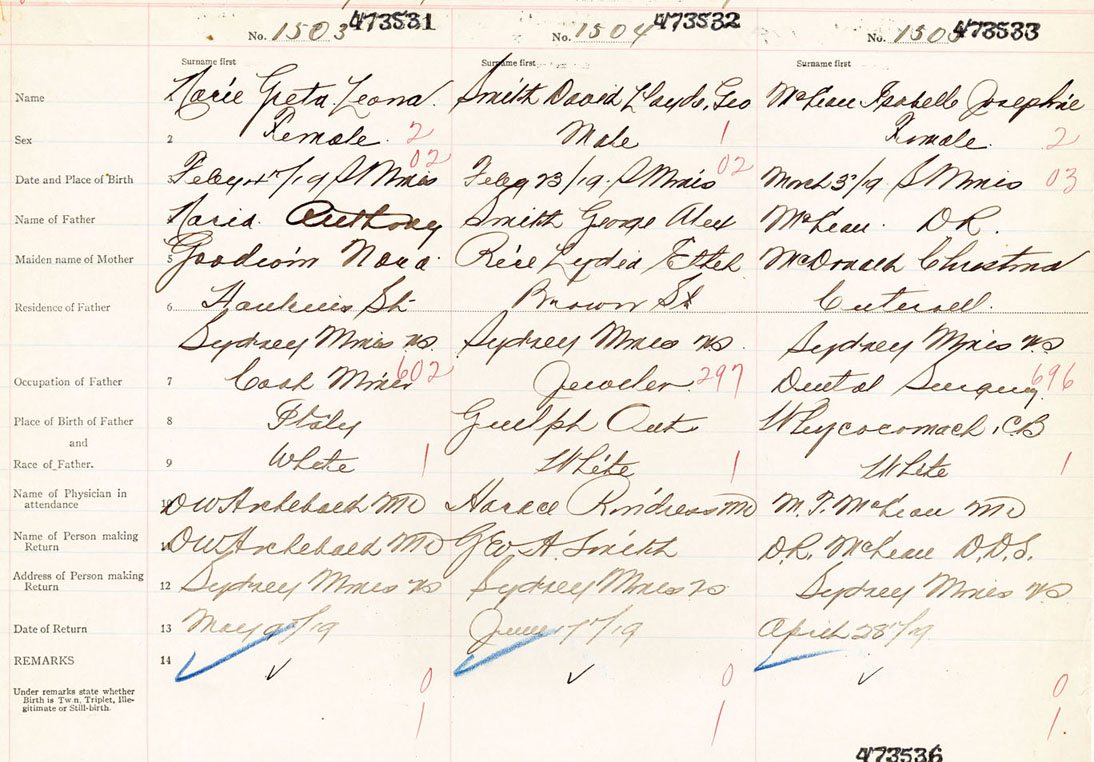 473531 473532 473533
No. 1503 No. 1504 No. 1505
Surname first Surname first Surname first
Name 1 Greta Leona Smith David Lloyd, Geo McLean Isabelle Josephine
Sex 2 Female 2 Male 1 Female 2
02 02
Date and Place of Birth 3 /19 S Mines Feby 23/19 S Mines March 3/19 S Mines 03
Name of Father 4 Anthony Smith George Alex McLean D R.
Maiden name of Mother 5 Rice Lydia Ethel McDonald Christina
Residence of Father 6 Hawkins St Brown St
Sydney Mines NS Sydney Mines NS Sydney Mines NS
Occupation of Father 7 Coal Miner 602 Jeweler 297 Dental Surgery 696
Place of Birth of Father 8 Italy Guelph Ont Whycocomach, CB
and
Race of Father. 9 White 1 White 1 White 1
Name of Physician in
attendance 10 DW Archebald MD Horace MD M. T. McLean MD
Name of Person making
Return 11 DW Archebald MD Geo A. Smith D.R. McLean D.D.S.
Address of Person making
Return 12 Sydney Mines NS Sydney Mines NS Sydney Mines NS
Date of Return 13 May /19 June 17/19 April 28/19
REMARKS 14
0 0 0
Under remarks state whether
Birth is Twin, Triplet, Ille-
gitimate or Still-birth.
1 1 1
473536